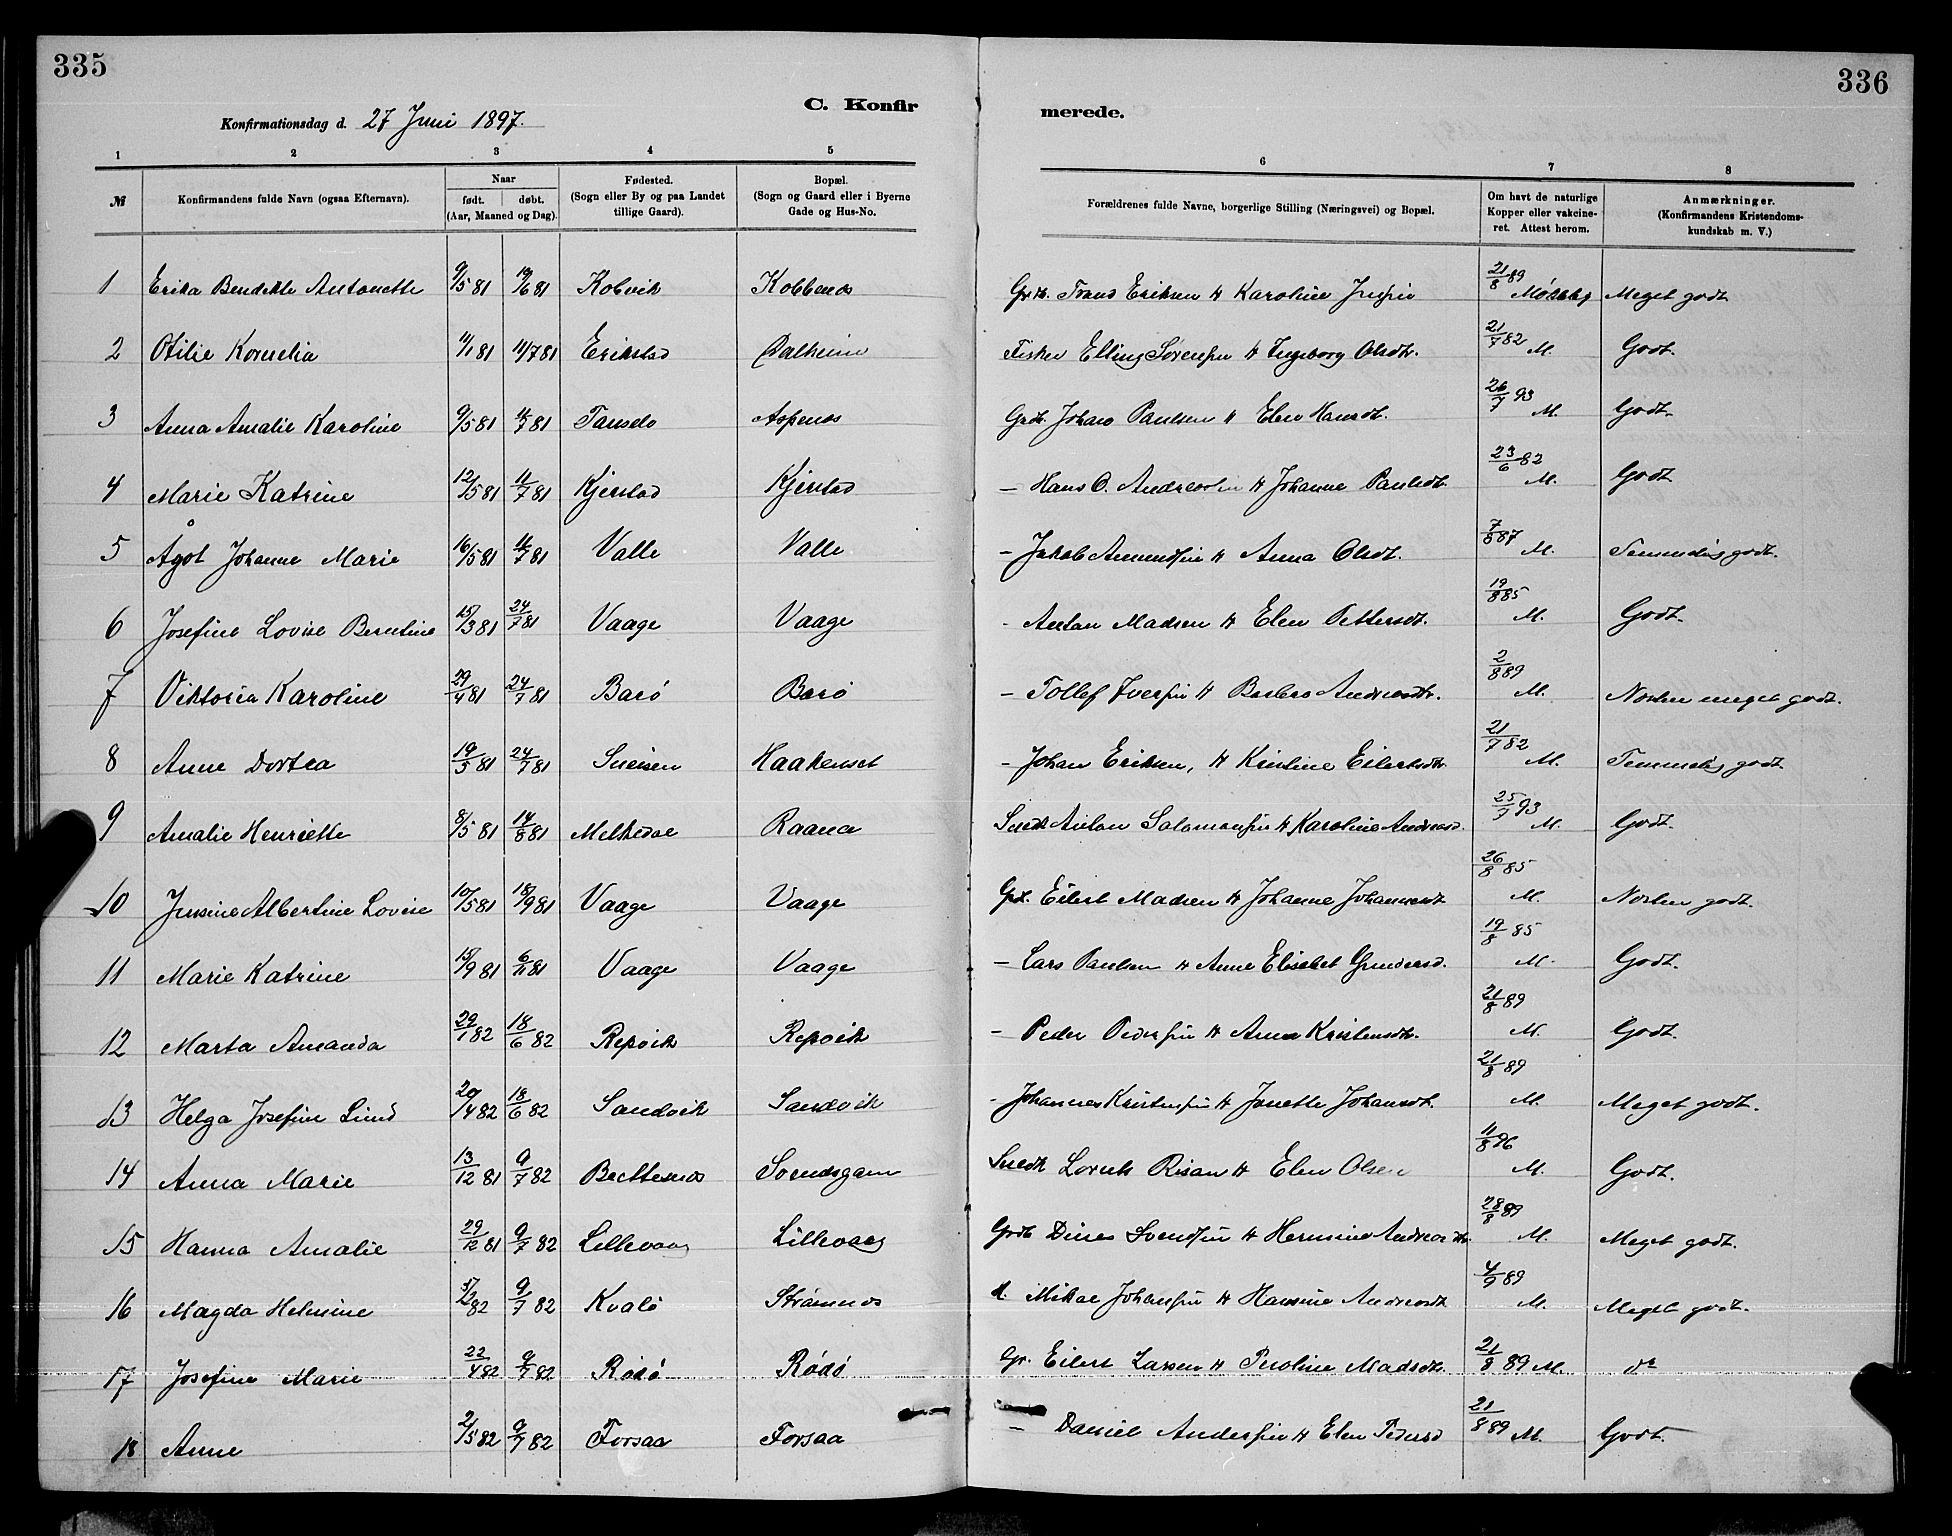 335
336
C. Konfirmerede.
Konfirmationsdag d. 27 Juni 1897.
1 2 3 4 5 6 7 8
№ Konfirmandens fulde Navn (ogsaa Efternavn). Naar født. døbt. (Aar, Maaned og Dag). Fødested. (Sogn eller By og paa Landet tillige Gaard). Bopæl. (Sogn og Gaard eller i Byerne Gade og Hus-No. Forældrenes fulde Navne, borgerlige Stilling (Næringsvei) og Bopæl. Om havt de naturlige Kopper eller vakcineret. Attest herom. Anmærkninger. (Konfirmandens Kristendomskundskab m. V.)
1 Erika Bendikte Antonette 9/5 81 19/6 81 Kobvik Kobbenes Grdb. Trans Eriksen & Karoline 21/8 89 Meget godt
2 Otilie Kornelia 11/1 81 11/7 81 Erikstad Dalheim Fisker Elling Sørensen & Ingeborg Olsdtr. 21/7 82 M. Godt.
3 Anna Amalie Karoline 9/5 81 11/7 81 Aspenes Grdb. Johan Paulsen & Elen Hansdt. 26/7 93 M. Godt.
4 Marie Katrine 12/5 81 11/7 81 Kjerstad Kjerstad — Hans O. Andreassen & Johanne Paulsdt. 23/6 82 M. Godt
5 Ågot Johanne Marie 16/5 81 11/7 81 Valle Valle — Jakob Amundsen & Anna Olsdt. 7/8 87 M. Temmelig godt.
6 Josefine Lovise Berntine 15/3 81 24/7 81 Vaage Vaage - Anton Madsen & Elen Pettersdt. 19/8 85 M. Godt.
7 Viktoria Karoline 29/4 81 24/7 81 Barø Barø — Tollef Iversen & Barbro Andreasdtr. 2/8 89 M. Næsten meget godt.
8 Anne Dortea 19/5 81 24/7 81 Haakenset — Johan Eriksen, & Kristine Eilertsdtr 21/7 82 M. Temmelig godt.
9 Amalie Henriette 8/5 81 14/8 81 Melkedal Raana Anton Salamonsen & Karoline Andreasd. 25/7 93 M. Godt.
10 Jensine Albertine Lovise 10/5 81 18/9 81 Vaage Vaage Grd. Eilert Madsen & Johanne Johannesdt 26/8 85 M. Næsten godt.
11 Marie Katrine 15/9 81 6/11 81 Vaage Vaage — Lars Paulsen & Anne Elisabet Gundersd. 19/8 85 M. Godt.
12 Marta Amanda 29/1 82 18/6 82 Repvik Repvik — Peder Pedersen & Anna Kristensdtr. 21/8 89 M. Godt.
13 Helga Josefine Lind 20/4 82 18/6 82 Sandvik Sandvik - Johannes Kristensen & Jonette Johansdt. 21/8 89 M. Meget godt.
14 Anna Marie 13/12 81 9/7 82 Svendsgam Lorents Risan & Elen Olsen 11/8 86 M. Godt.
15 Hanna Amalie 29/12 81 9/7 82 Lillevaag Lillevaag Grdb Dines Svendsen & Hermine Andreasdtr. 28/8 89 M. Meget godt.
16 Magda Helmine 82 9/7 82 Kvalø Strømnes Mikal Johansen & Hansine Andreasdt 4/9 89 M. Meget godt.
17 Josefine Marie 22/4 82 9/7 82 Rødø Rødø Gr. Eilert Larsen & Peroline Madsdtr. 21/8 89 M. do
18 Anne 2/5 82 9/7 82 Forsaa Forsaa — Daniel Andersen & Elen Pedersd 21/8 89 M. Godt.